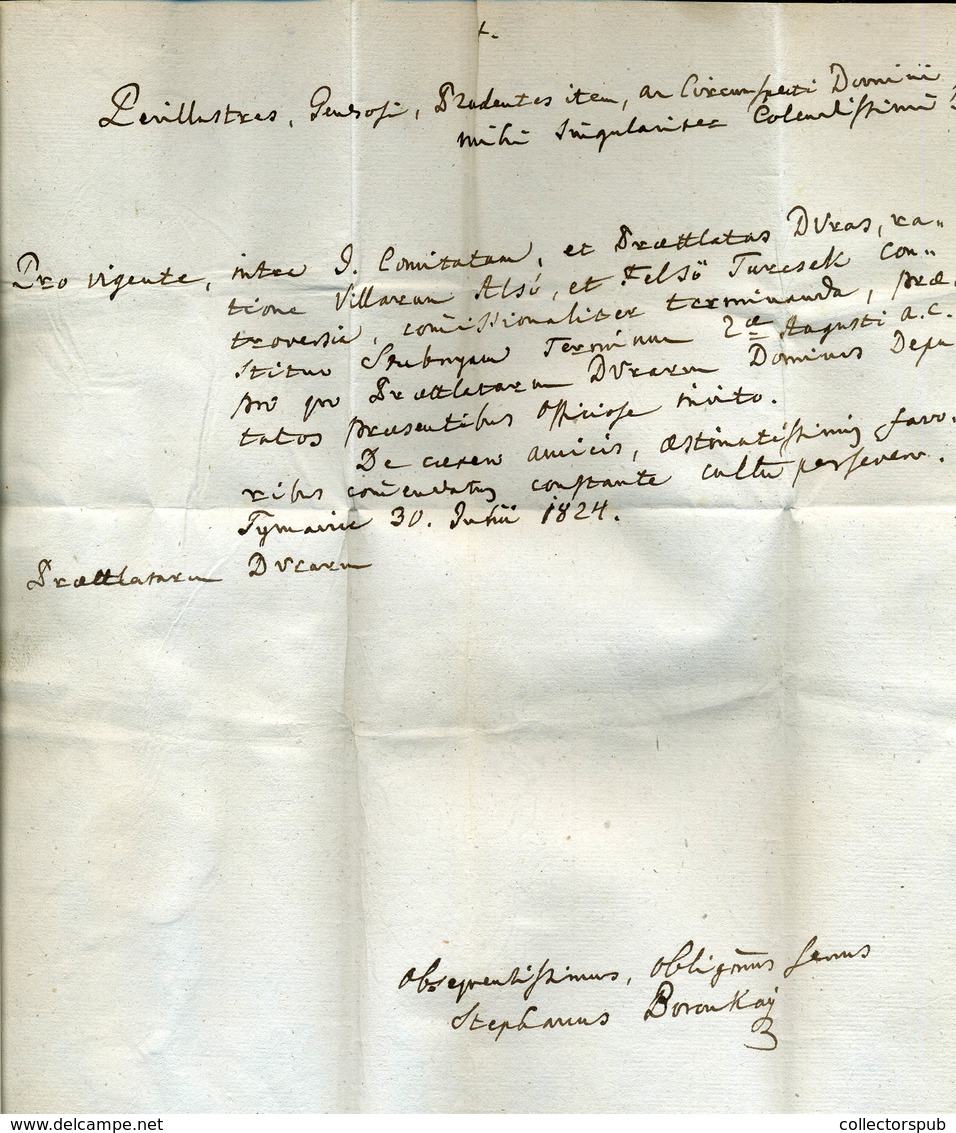 +.
Perillustres, Generosi, Prudentes item, ac Circumspecti Domini
mihi Singulariter Colendissimi
Pro vigente, intra I. Comitatum, et Prættlatas DVras, ra„
tione Villarum Alsó, et Felső Turcsek con„
troversia, com̄issionaliter terminanda, præ„
stituo Stubnyam Terminum 2æ Augusti a.c.
pro Prættlatarum DVrarum Dominos Depu
tatos præsentibus Officiose invito.
De cæreo amicis, æstimatissimis favo„
ribus com̄endatus constante cultu persevero.
Tyrnaviæ 30. Junii 1824.
Prættlatarum DVrarum
Obsequentissimus, Obligmus servus
Stephanus Boronkay
www.delcampe.net
collectorspub